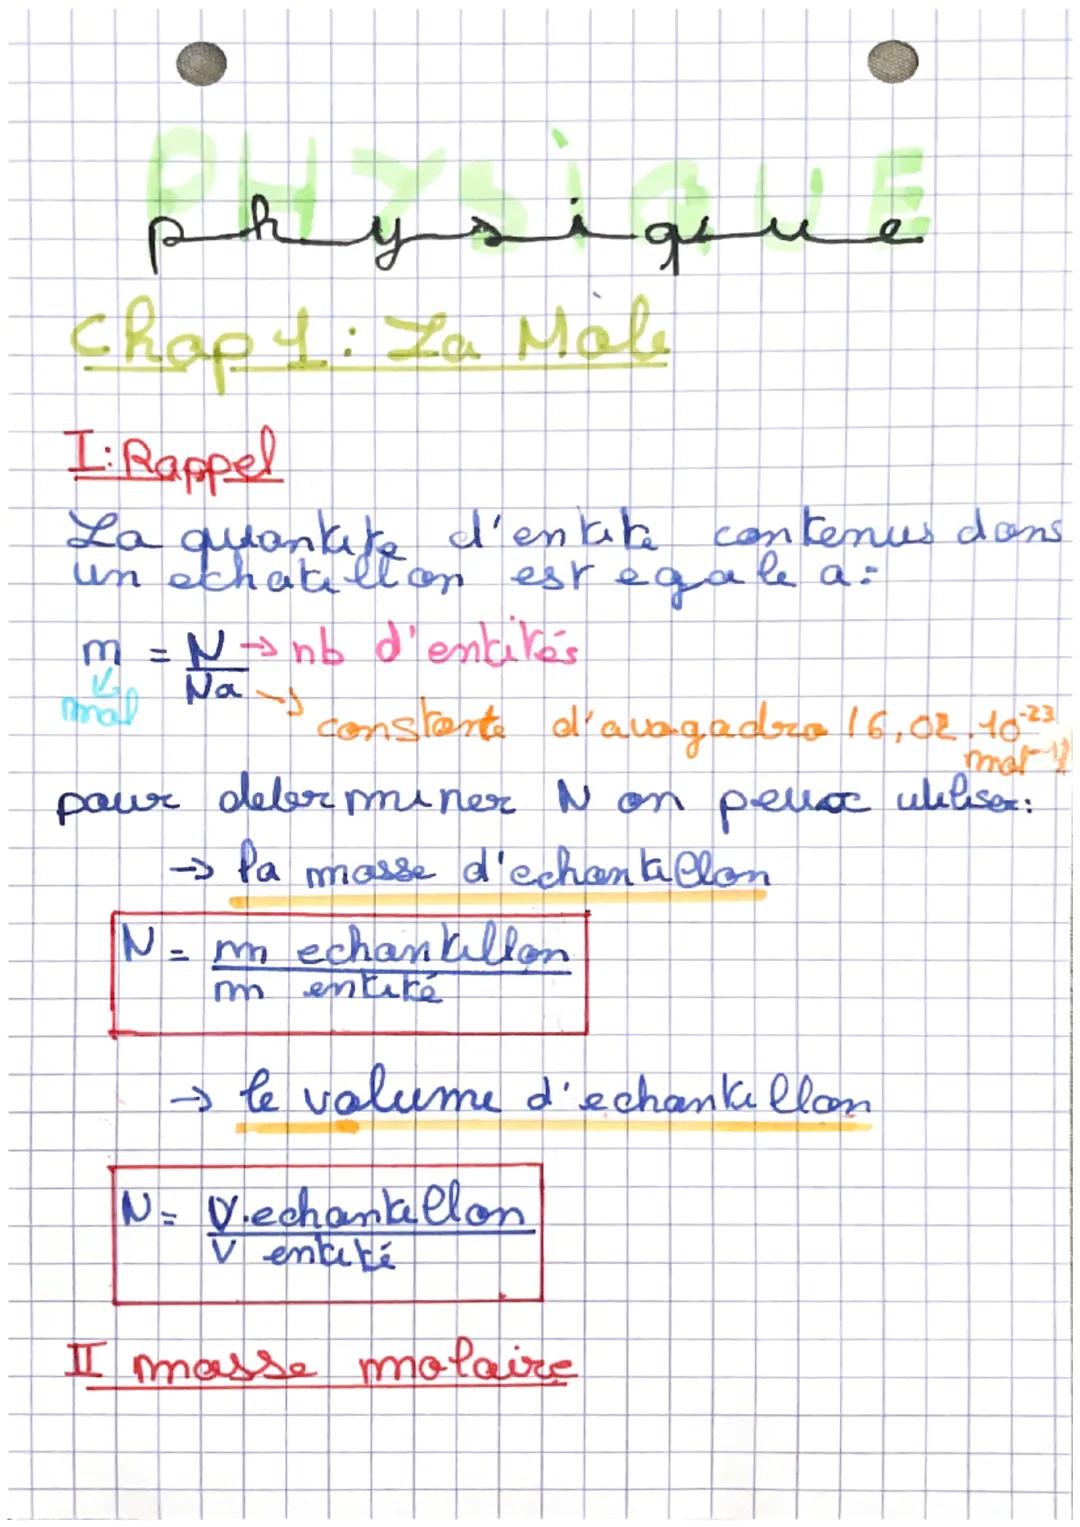 PHYSIQUE
physique
Chap 1: La Mole
I: Rappel
La quantite d'entite contenus dans
un echatillon est egale a:
m = N → nb d'entités
Na
mol
constante d'avogadro (6,02.10^-23
mol^-1)
pour determiner N on peux utiliser:
→ la masse d'echantillon
N = m echantillon
m entité
→ le volume d'echantillon
N = V.echantillon
V entité
II masse molaire